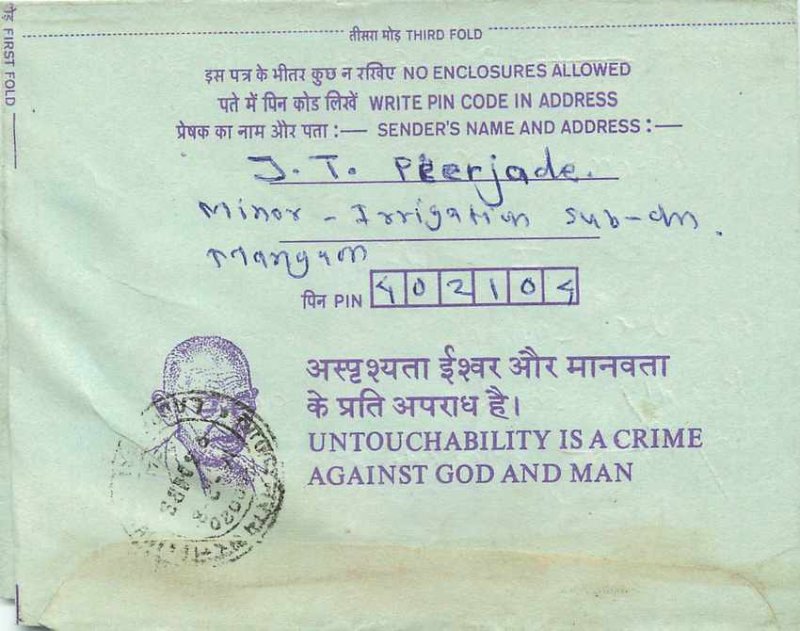 तीसरा मोड़ THIRD FOLD
मोड़ FIRST FOLD
इस पत्र के भीतर कुछ न रखिए NO ENCLOSURES ALLOWED
पते में पिन कोड लिखें WRITE PIN CODE IN ADDRESS
प्रेषक का नाम और पता :— SENDER'S NAME AND ADDRESS :—
J. T. Peerjade.
Minor - Irrigation Sub-dn.
पिन PIN 402104
अस्पृश्यता ईश्वर और मानवता
के प्रति अपराध है।
UNTOUCHABILITY IS A CRIME
AGAINST GOD AND MAN